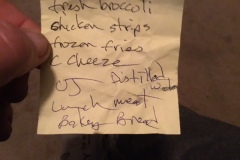 fresh broccoli
chicken strips
frozen fries
c cheeze
OJ Distilled Water
Lunch meat
Bakery Bread